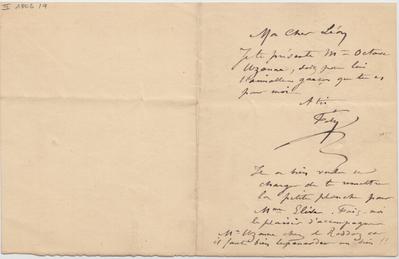 II 1806/9
Mon Cher Léon
Je te présente Mr Octave
Uzanne, sois pour lui
l'aimable garçon que tu es
pour moi
A toi
Fély
Il a bien voulu se
charge de te remettre
la petite planche pour
Mme Elisa. Fais-moi
le plaisir d'accompagner
Mr Uzanne chez de
il faut bien un !!